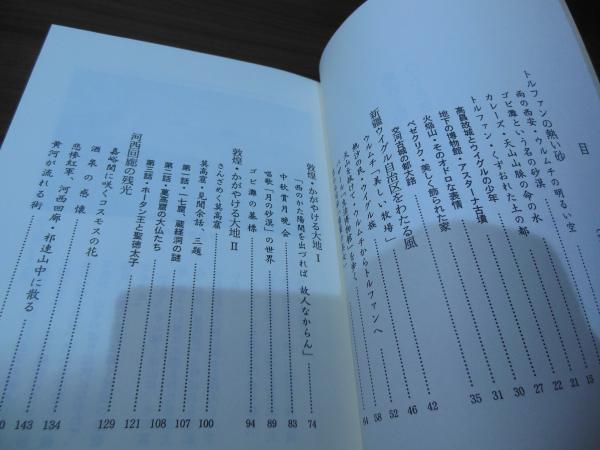 目
トルファンの熱い砂
雨の西安・ウルムチの明るい空 15
ゴビ灘という名の砂漠 21
カレーズ・天山山脈の命の水 22
トルファン・くずおれた土の都 27
高昌故城とウイグルの少年 30
地下の博物館・アスターナ古墳 31
火焔山・そのオドロな表情 35
ベゼクリク・美しく飾られた家 42
交河古城の郁大姐 46
新疆ウイグル自治区をわたる風
ウルムチ「美しい牧場」 52
熱沙の民・ウイグル族 58
ウルムチからトルファンへ 64
敦煌・かがやける大地 Ⅰ
「西のかた陽関を出づれば 故人なからん」 74
中秋賞月晩会 83
唱歌「月の砂漠」の世界 89
ゴビ灘の墓標 94
敦煌・かがやける大地 Ⅱ
さんざめく莫高窟 100
莫高窟・見聞余話、三題 107
第一話・一七窟、蔵経洞の謎 108
第二話・莫高窟の大仏たち 121
第三話・ホータン王と聖徳太子 129
河西回廊の残光
嘉峪関に咲くコスモスの花 134
酒泉の感懐 143
悲惨紅軍・河西回廊・祁連山中に散る
黄河が流れる街